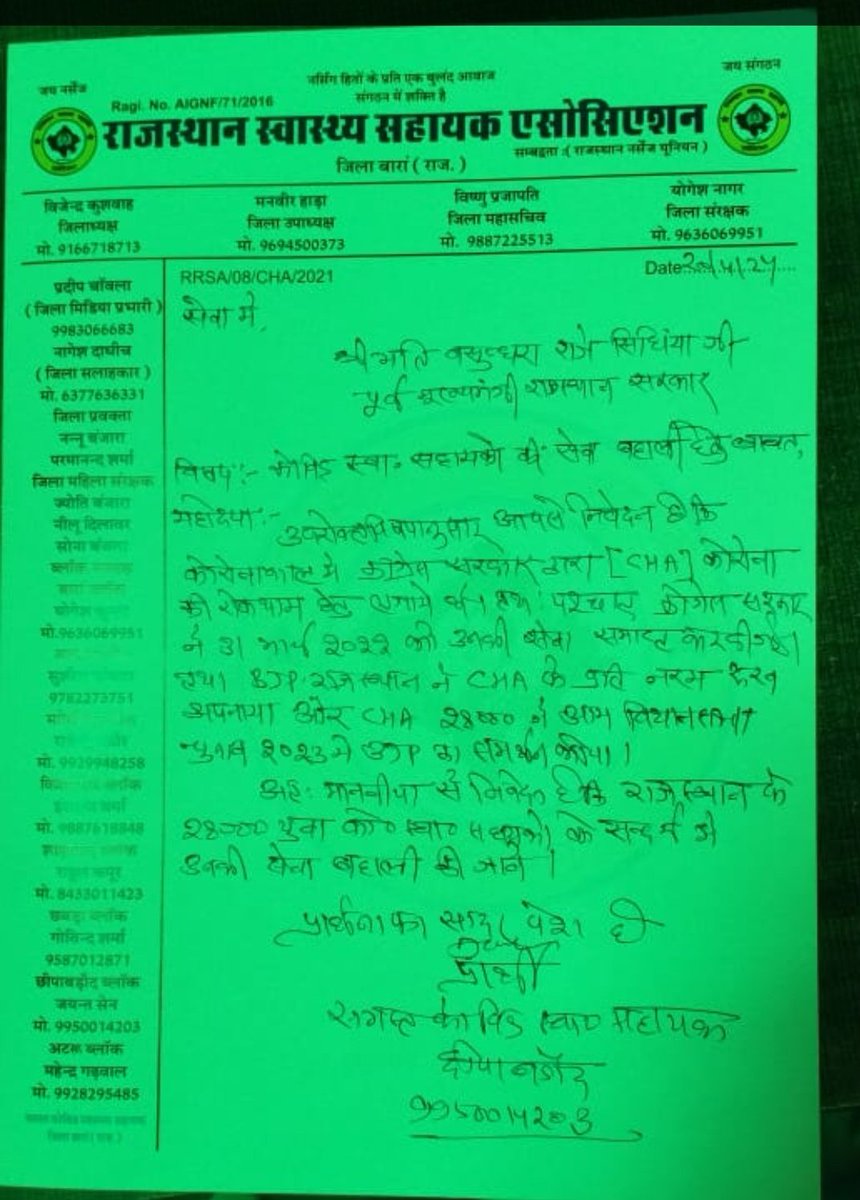 जय नर्सेज
नर्सिग हितों के प्रति एक बुलंद आवाज
जय संगठन
Ragi. No. AIGNF/71/2016
संगठन में शक्ति है
राजस्थान स्वास्थ्य सहायक एसोसिएशन
सम्बद्धता :( राजस्थान नर्सेज यूनियन )
जिला बारां ( राज. )
विजेन्द्र कुशवाह
जिलाध्यक्ष
मो. 9166718713
मनवीर हाड़ा
जिला उपाध्यक्ष
मो. 9694500373
विष्णु प्रजापति
जिला महासचिव
मो. 9887225513
योगेश नागर
जिला संरक्षक
मो. 9636069951
प्रदीप चॉवला
( जिला मिडिया प्रभारी )
9983066683
नागेश दाधीच
( जिला सलाहकार )
मो. 6377636331
जिला प्रवक्ता
नन्नू बंजारा
परमानन्द शर्मा
जिला महिला संरक्षक
ज्योति बंजारा
नीलू दिलावर
सोना बंजारा
ब्लॉक
मो.9636069951
9782273751
मो. 9929948258
ब्लॉक
शर्मा
मो. 9887618848
ब्लॉक
कपूर
मो. 8433011423
छबड़ा ब्लॉक
गोविन्द शर्मा
9587012871
छीपाबड़ौद ब्लॉक
जयन्त सेन
मो. 9950014203
अटरू ब्लॉक
महेन्द्र गड़वाल
मो. 9928295485
RRSA/08/CHA/2021
Date
सेवा मे,
श्री मति वसुन्धरा राजे सिंधिंया जी
पूर्व मुख्यमंत्री राजस्थान सरकार
विषय:- कोविड स्वा. सहायको की सेवा बहाली हेतु बाबत,
महोदया:- उपरोक्त विषयानुसार आपसे निवेदन है कि
कोरोनाकाल मे कांग्रेस सरकार द्वारा [CHA] कोरोना
की रोकथाम हेतु लगाये थे। पश्चात कांग्रेस सरकार
ने 31 मार्च 2022 को उनकी सेवा समाप्त कर दी गई।
तथा BJP राजस्थान ने CHA के प्रति नरम रूख
अपनाया और CHA 28000 ने आम विधानसभा
चुनाव 2023 मे BJP का समर्थन कीया।
अतः मानवीया से निवेदन है कि राजस्थान के
28000 युवा को० स्वा० सहायको के सन्दर्भ मे
उनकी सेवा बहाली की जावे।
प्रार्थना पत्र सादर पेश है
प्रार्थी
समस्त कोविड स्वा० सहायक
9950014203